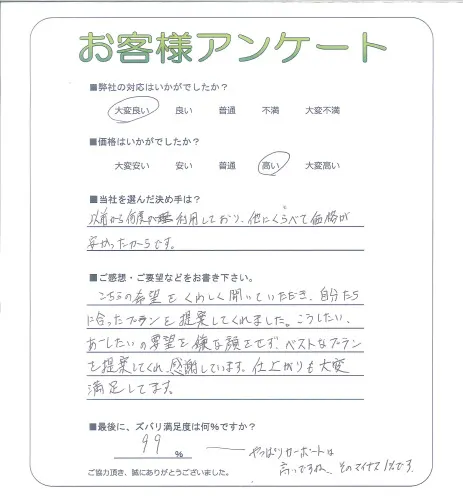 お客様アンケート
■弊社の対応はいかがでしたか？
大変良い 良い 普通 不満 大変不満
■価格はいかがでしたか？
大変安い 安い 普通 高い 大変高い
■当社を選んだ決め手は？
以前から何度か利用しており、他にくらべて価格が
安かったからです。
■ご感想・ご要望などをお書き下さい。
こちらの希望をくわしく聞いていただき、自分たち
に合ったプランを提案してくれました。こうしたい、
あーしたいの要望を嫌な顔をせず、ベストなプラン
を提案してくれ、感謝しています。仕上がりも大変
満足してます。
■最後に、ズバリ満足度は何％ですか？
99 %
やっぱりカーポートは
高いですね。そのマイナス1%です。
ご協力頂き、誠にありがとうございました。